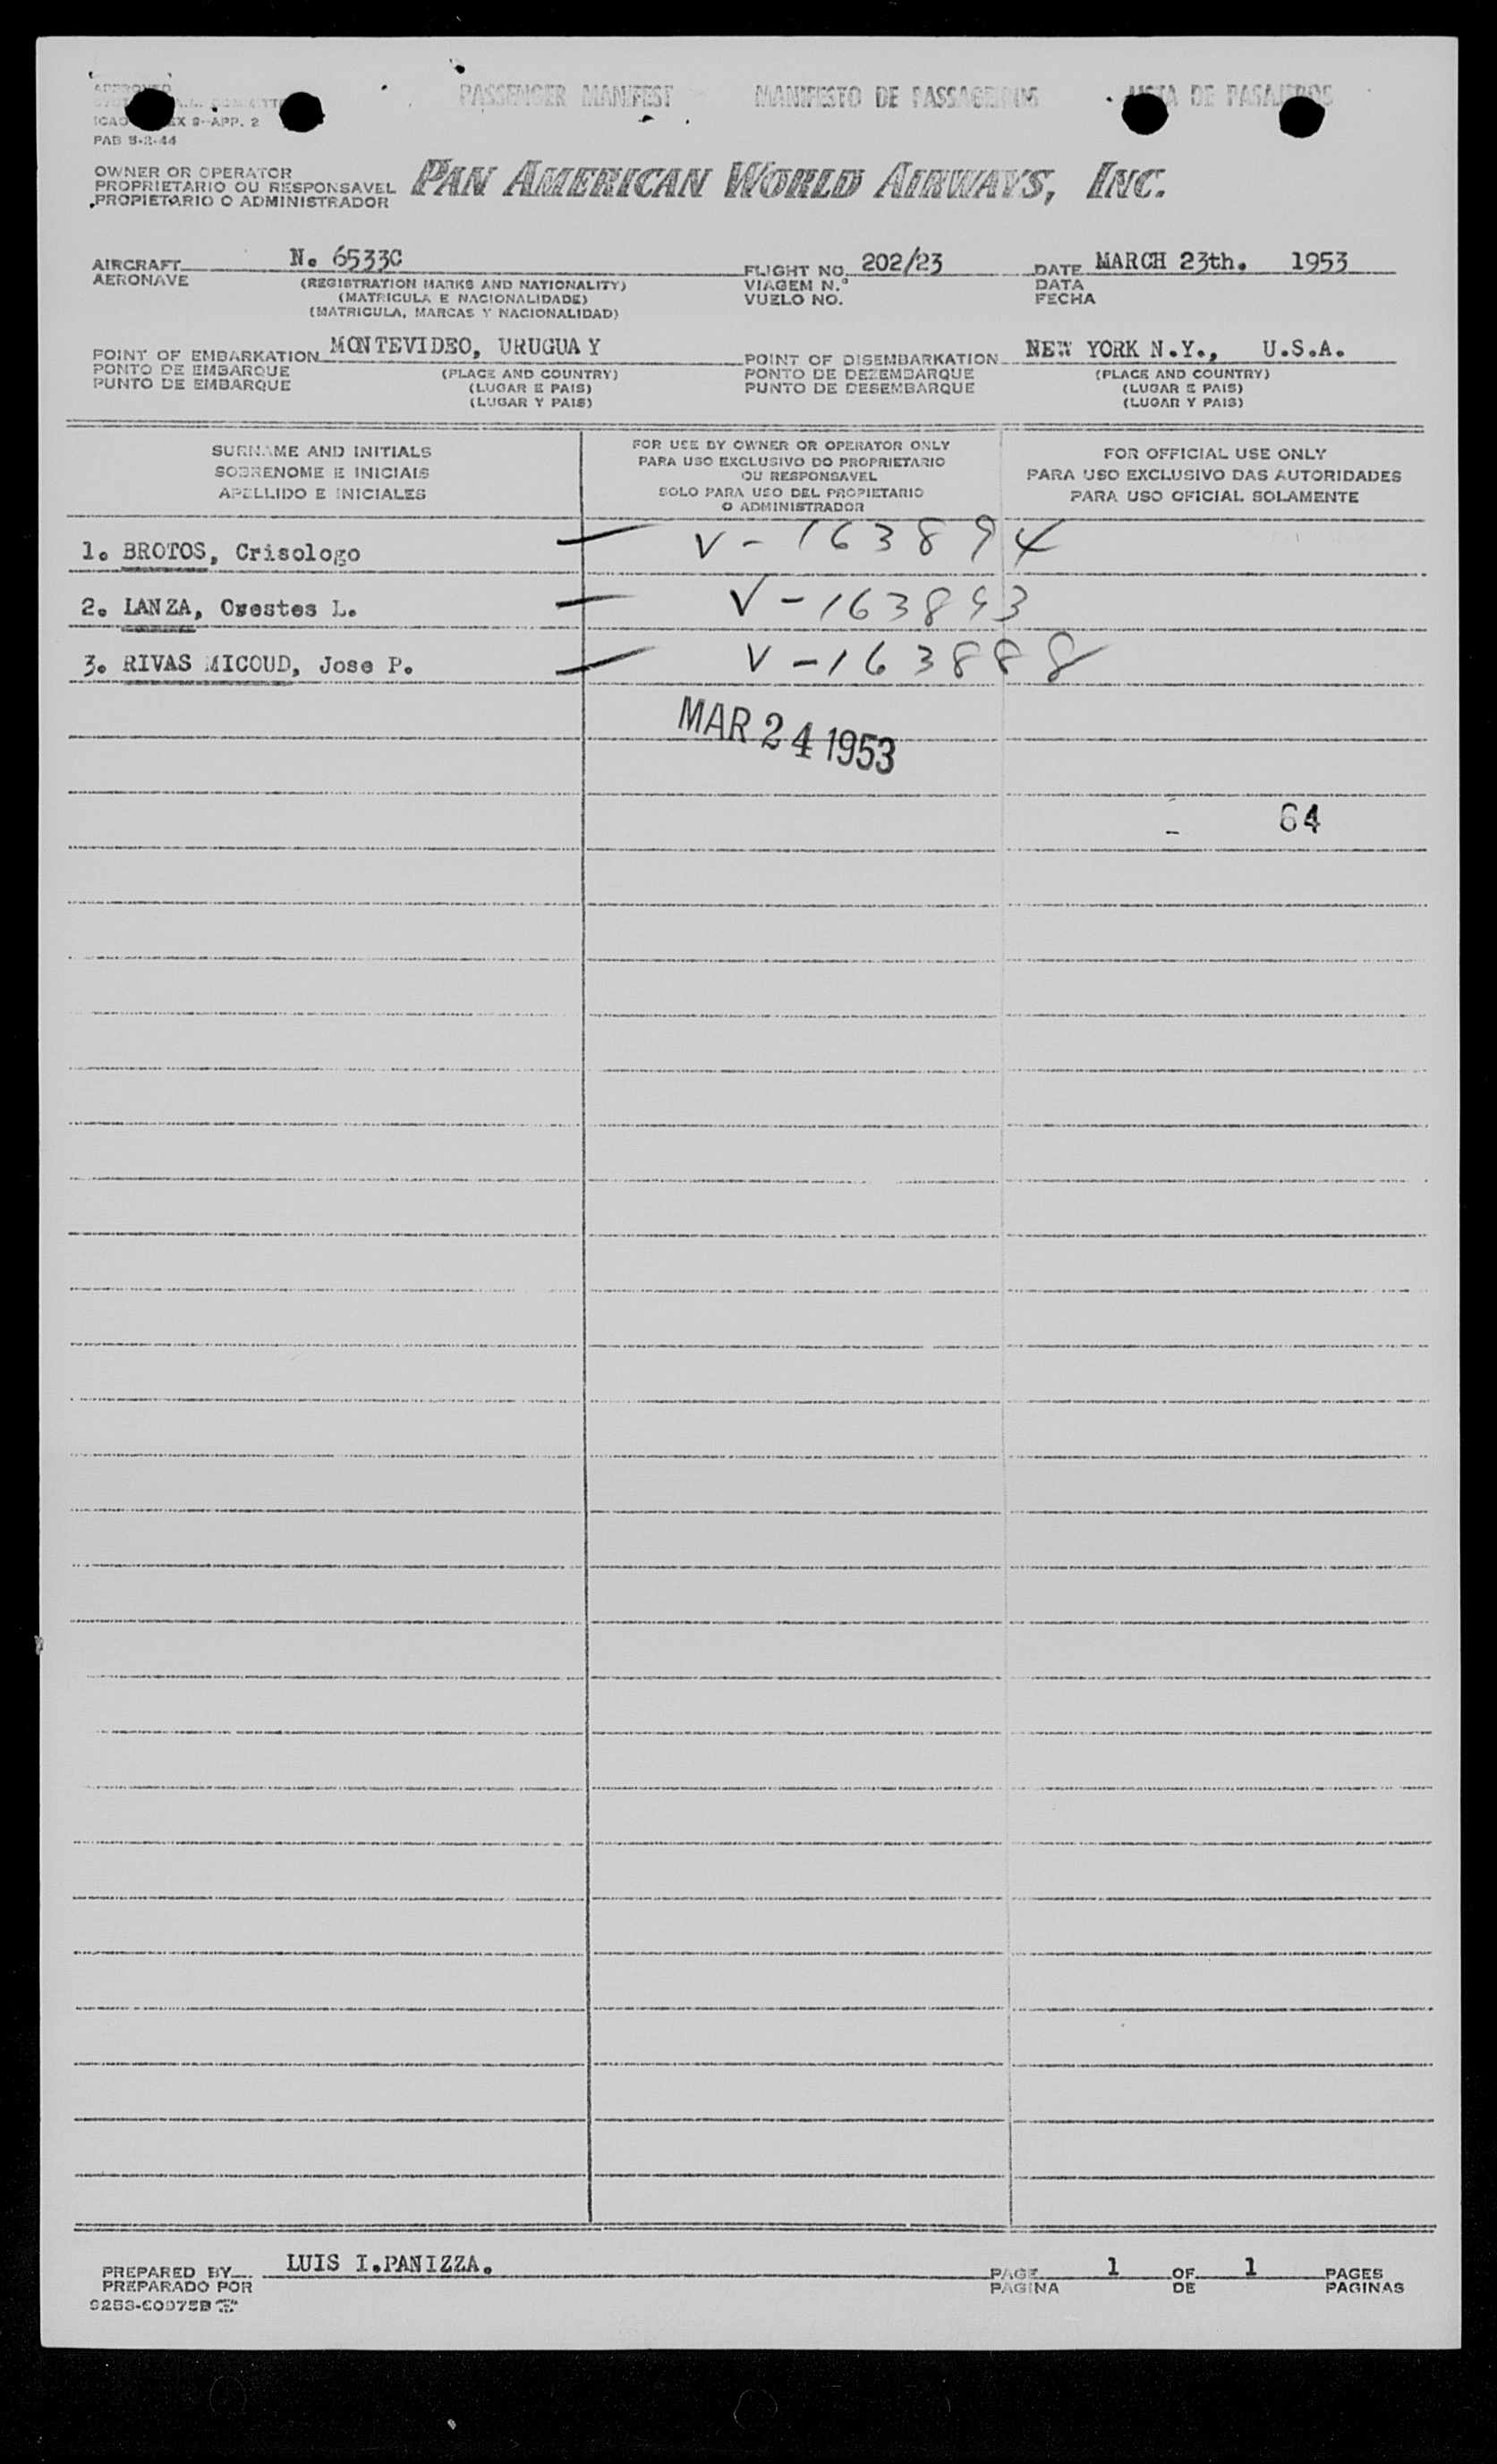 PASSENGER MANIFEST MANIFESTO DE PASSAGEIROS LISTA DE PASAJEROS
APPROVED
ICAO ANNEX 9-APP. 2
PAB 5-2-44
OWNER OR OPERATOR
PROPRIETARIO OU RESPONSAVEL
PROPIETARIO O ADMINISTRADOR
PAN AMERICAN WORLD AIRWAYS, INC.
AIRCRAFT N. 6533C FLIGHT NO. 202/23 DATE MARCH 23th. 1953
AERONAVE (REGISTRATION MARKS AND NATIONALITY) VIAGEM N.º DATA
(MATRICULA E NACIONALIDADE) VUELO NO. FECHA
(MATRICULA, MARCAS Y NACIONALIDAD)
POINT OF EMBARKATION MONTEVIDEO, URUGUAY POINT OF DISEMBARKATION NEW YORK N.Y., U.S.A.
PONTO DE EMBARQUE (PLACE AND COUNTRY) PONTO DE DEZEMBARQUE (PLACE AND COUNTRY)
PUNTO DE EMBARQUE (LUGAR E PAIS) PUNTO DE DESEMBARQUE (LUGAR E PAIS)
(LUGAR Y PAIS) (LUGAR Y PAIS)
SURNAME AND INITIALS
SOBRENOME E INICIAIS
APELLIDO E INICIALES
FOR USE BY OWNER OR OPERATOR ONLY
PARA USO EXCLUSIVO DO PROPRIETARIO
OU RESPONSAVEL
SOLO PARA USO DEL PROPIETARIO
O ADMINISTRADOR
FOR OFFICIAL USE ONLY
PARA USO EXCLUSIVO DAS AUTORIDADES
PARA USO OFICIAL SOLAMENTE
1. BROTOS, Crisologo V-163894
2. LANZA, Orestes L. V-163893
3. RIVAS MICOUD, Jose P. V-163888
MAR 24 1953
- 64
PREPARED BY LUIS I.PANIZZA. PAGE 1 OF 1 PAGES
PREPARADO POR PAGINA DE PAGINAS